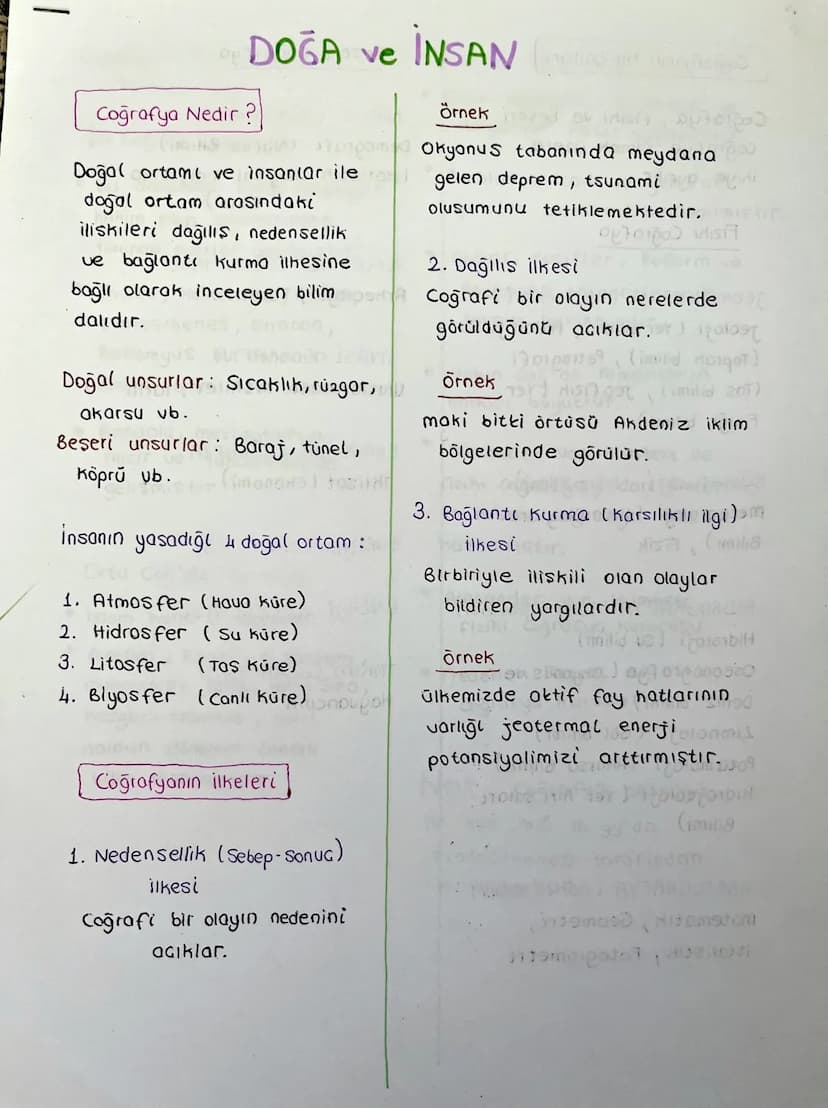 DOĞA ve İNSAN
Coğrafya Nedir ?
Doğal ortamı ve insanlar ile
doğal ortam arasındaki
iliskileri dağılıs, nedensellik
ve bağlantı kurma ilkesine
bağlı olarak inceleyen bilim
dalıdır.
Doğal unsurlar: Sıcaklık, rüzgar,
akarsu vb.
Beşeri unsurlar: Baraj, tünel,
köprü vb.
İnsanın yasadığı 4 doğal ortam :
1. Atmosfer (Hava küre)
2. Hidrosfer (Su küre)
3. Litosfer (Tas Küre)
4. Biyosfer (Canlı Küre)
Coğrafyanın ilkeleri
1. Nedensellik (Sebep-Sonuc)
ilkesi
Coğrafi bir olayın nedenini
acıklar.
Örnek
Okyonus tabanında meydana
gelen deprem, tsunami
olusumunu tetiklemektedir.
2. Dağılıs ilkesi
Coğrafi bir olayın nerelerde
görüldüğünü acıklar.
Örnek
maki bitki örtüsü Akdeniz iklim
bölgelerinde görülür.
3. Bağlantı Kurma (Karsılıklı ilgi)
ilkesi
Birbiriyle iliskili olan olaylar
bildiren yargılardır.
Örnek
ülkemizde aktif fay hatlarının
varlığı jeotermal enerji
potansiyalimizi arttırmıştır.